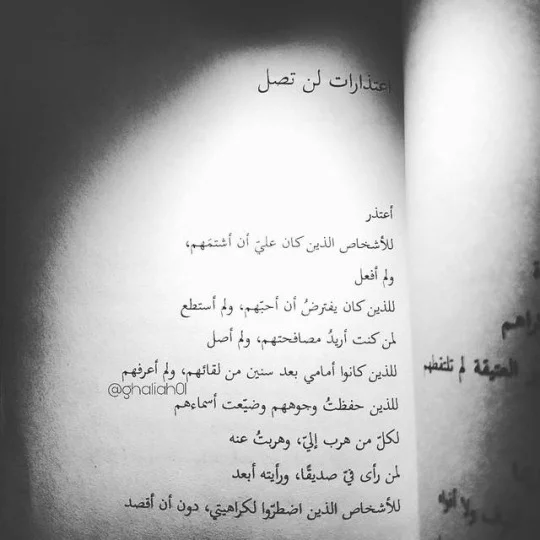 اعتذارات لن تصل
أعتذر
للأشخاص الذين كان عليّ أن أشتمَهم،
ولم أفعل
للذين كان يفترضُ أن أحبّهم، ولم أستطع
لمن كنت أريدُ مصافحتهم، ولم أصل
للذين كانوا أمامي بعد سنين من لقائهم، ولم أعرفهم
@ghaliah01
للذين حفظتُ وجوههم وضيّعت أسماءهم
لكلّ من هرب إليّ، وهربتُ عنه
لمن رأى فيّ صديقًا، ورأيته أبعد
للأشخاص الذين اضطرّوا لكراهيتي، دون أن أقصد
لم تلتقطهم